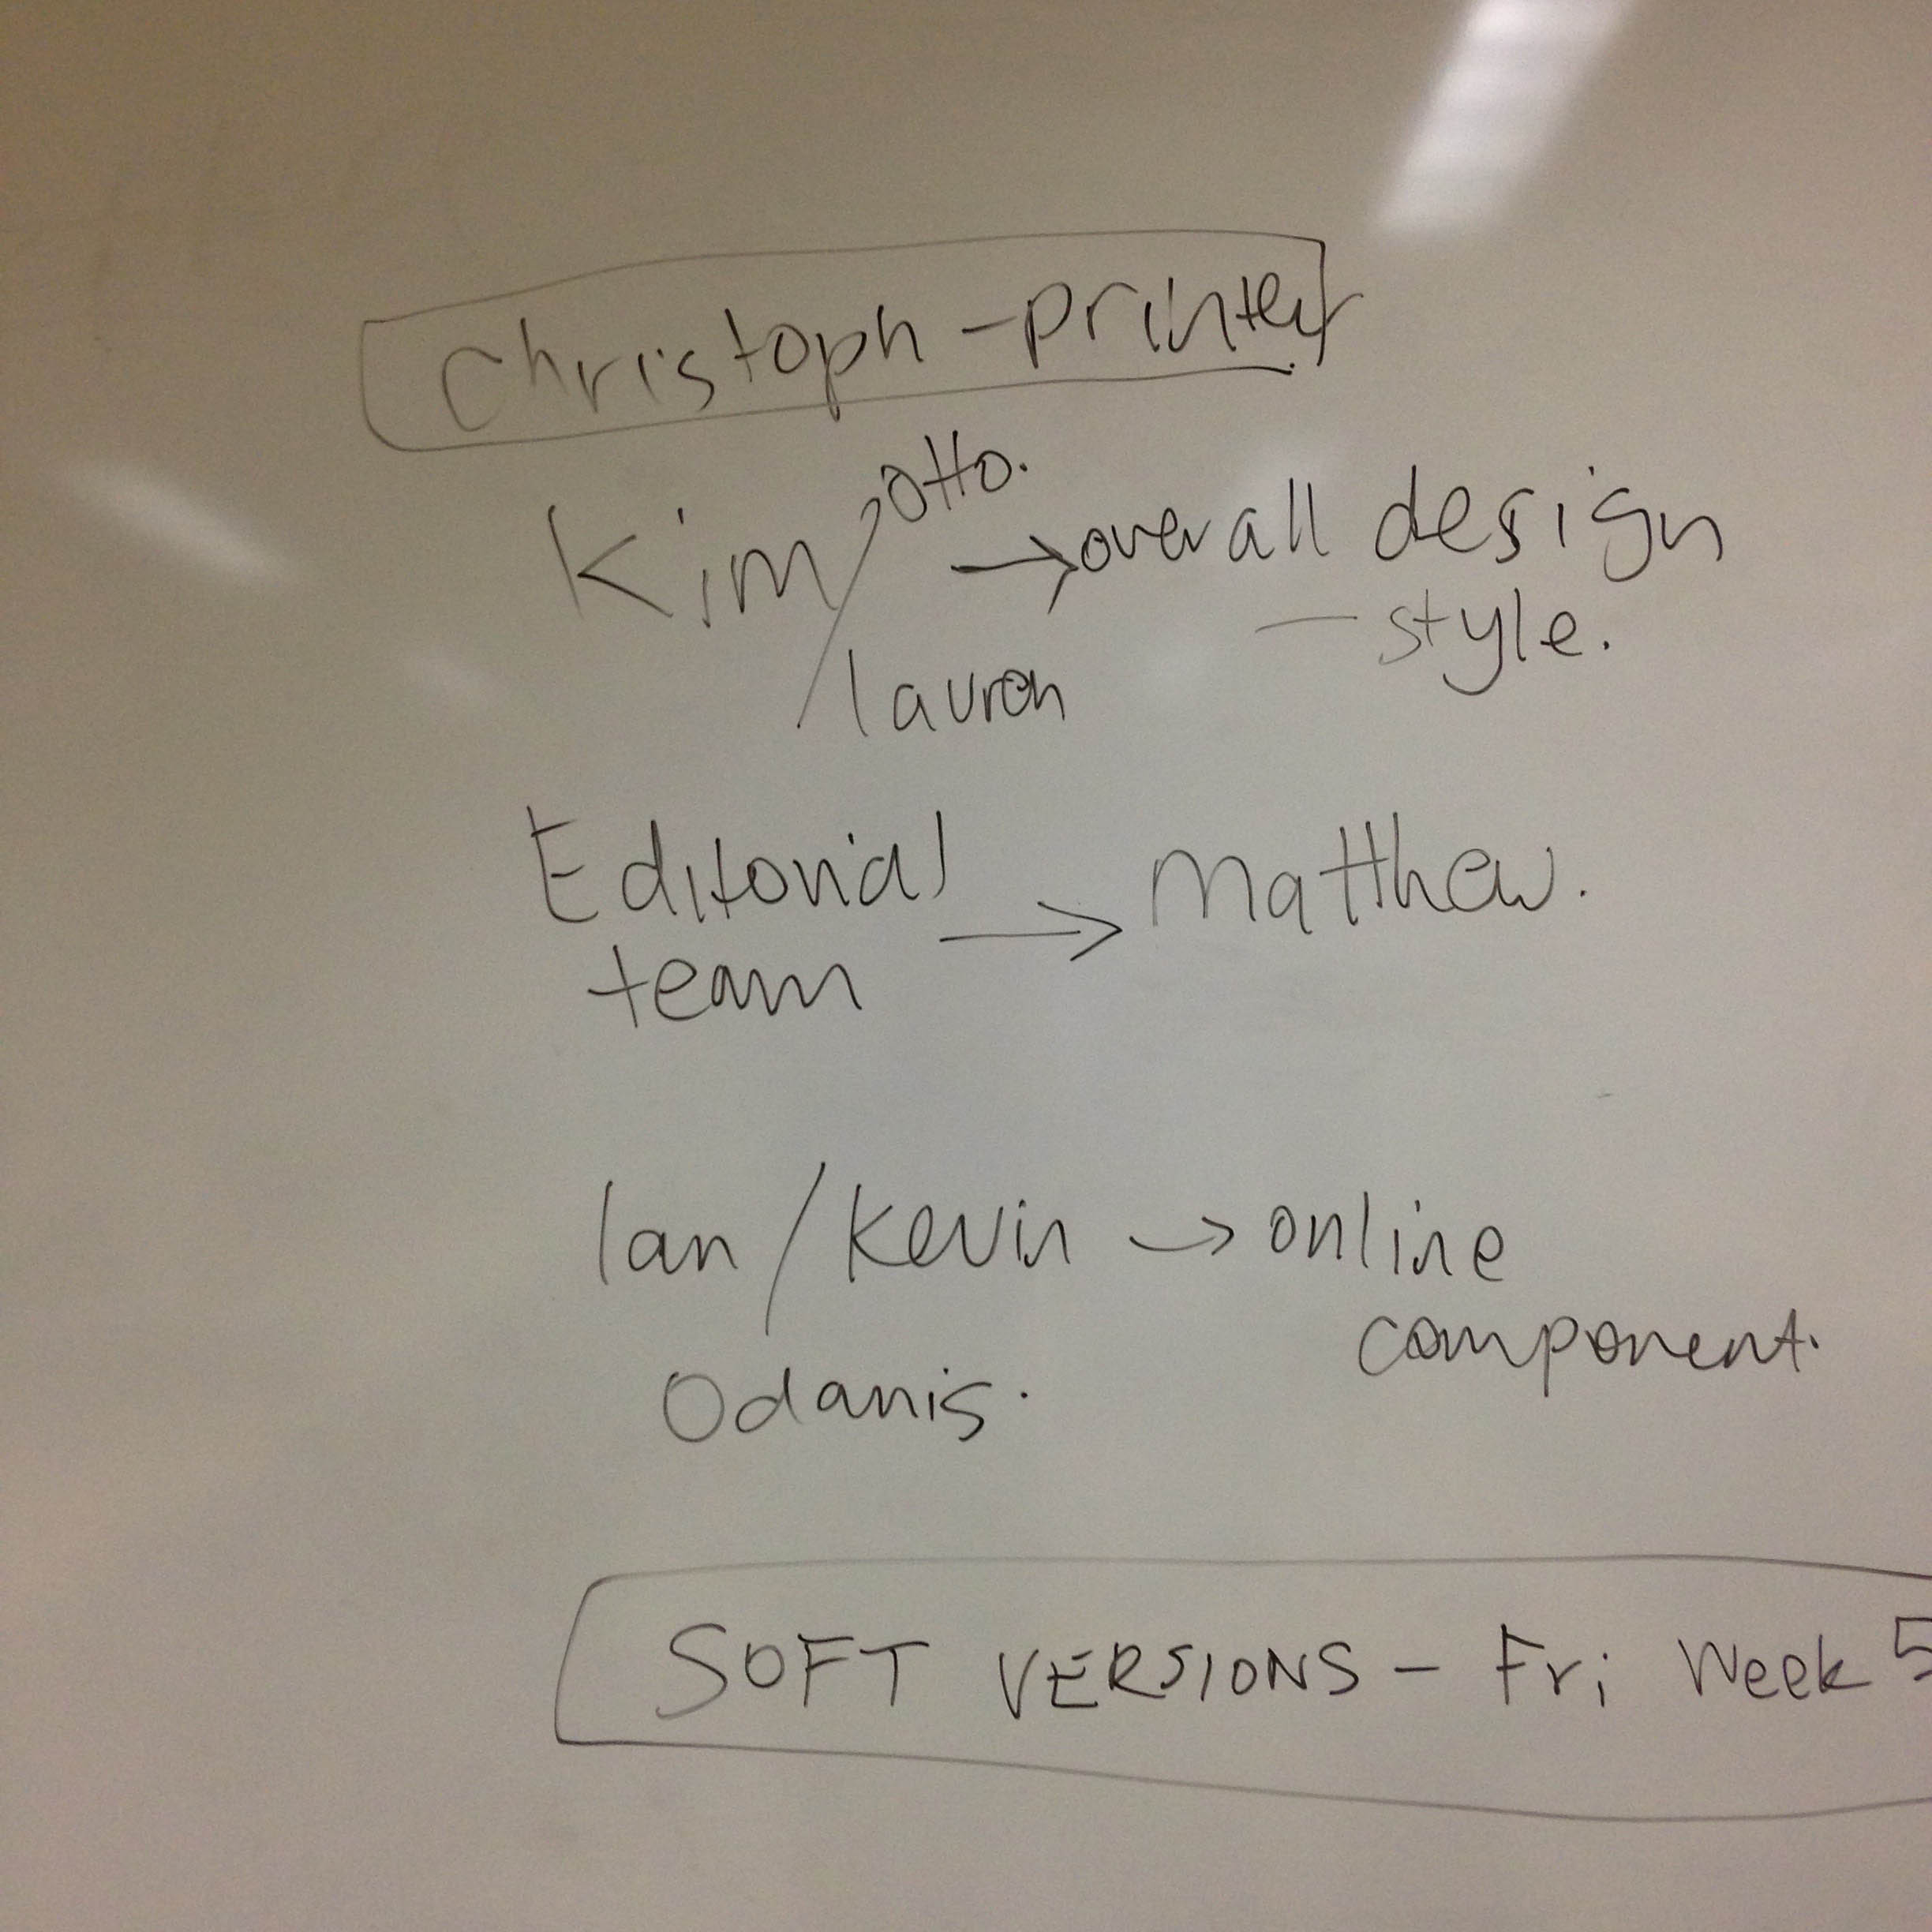 Christoph - printer
Kim / Otto. → overall design
- style.
lauren
Editorial → Matthew.
team
Ian / Kevin → online
component.
Odanis.
SOFT VERSIONS - Fri Week 5